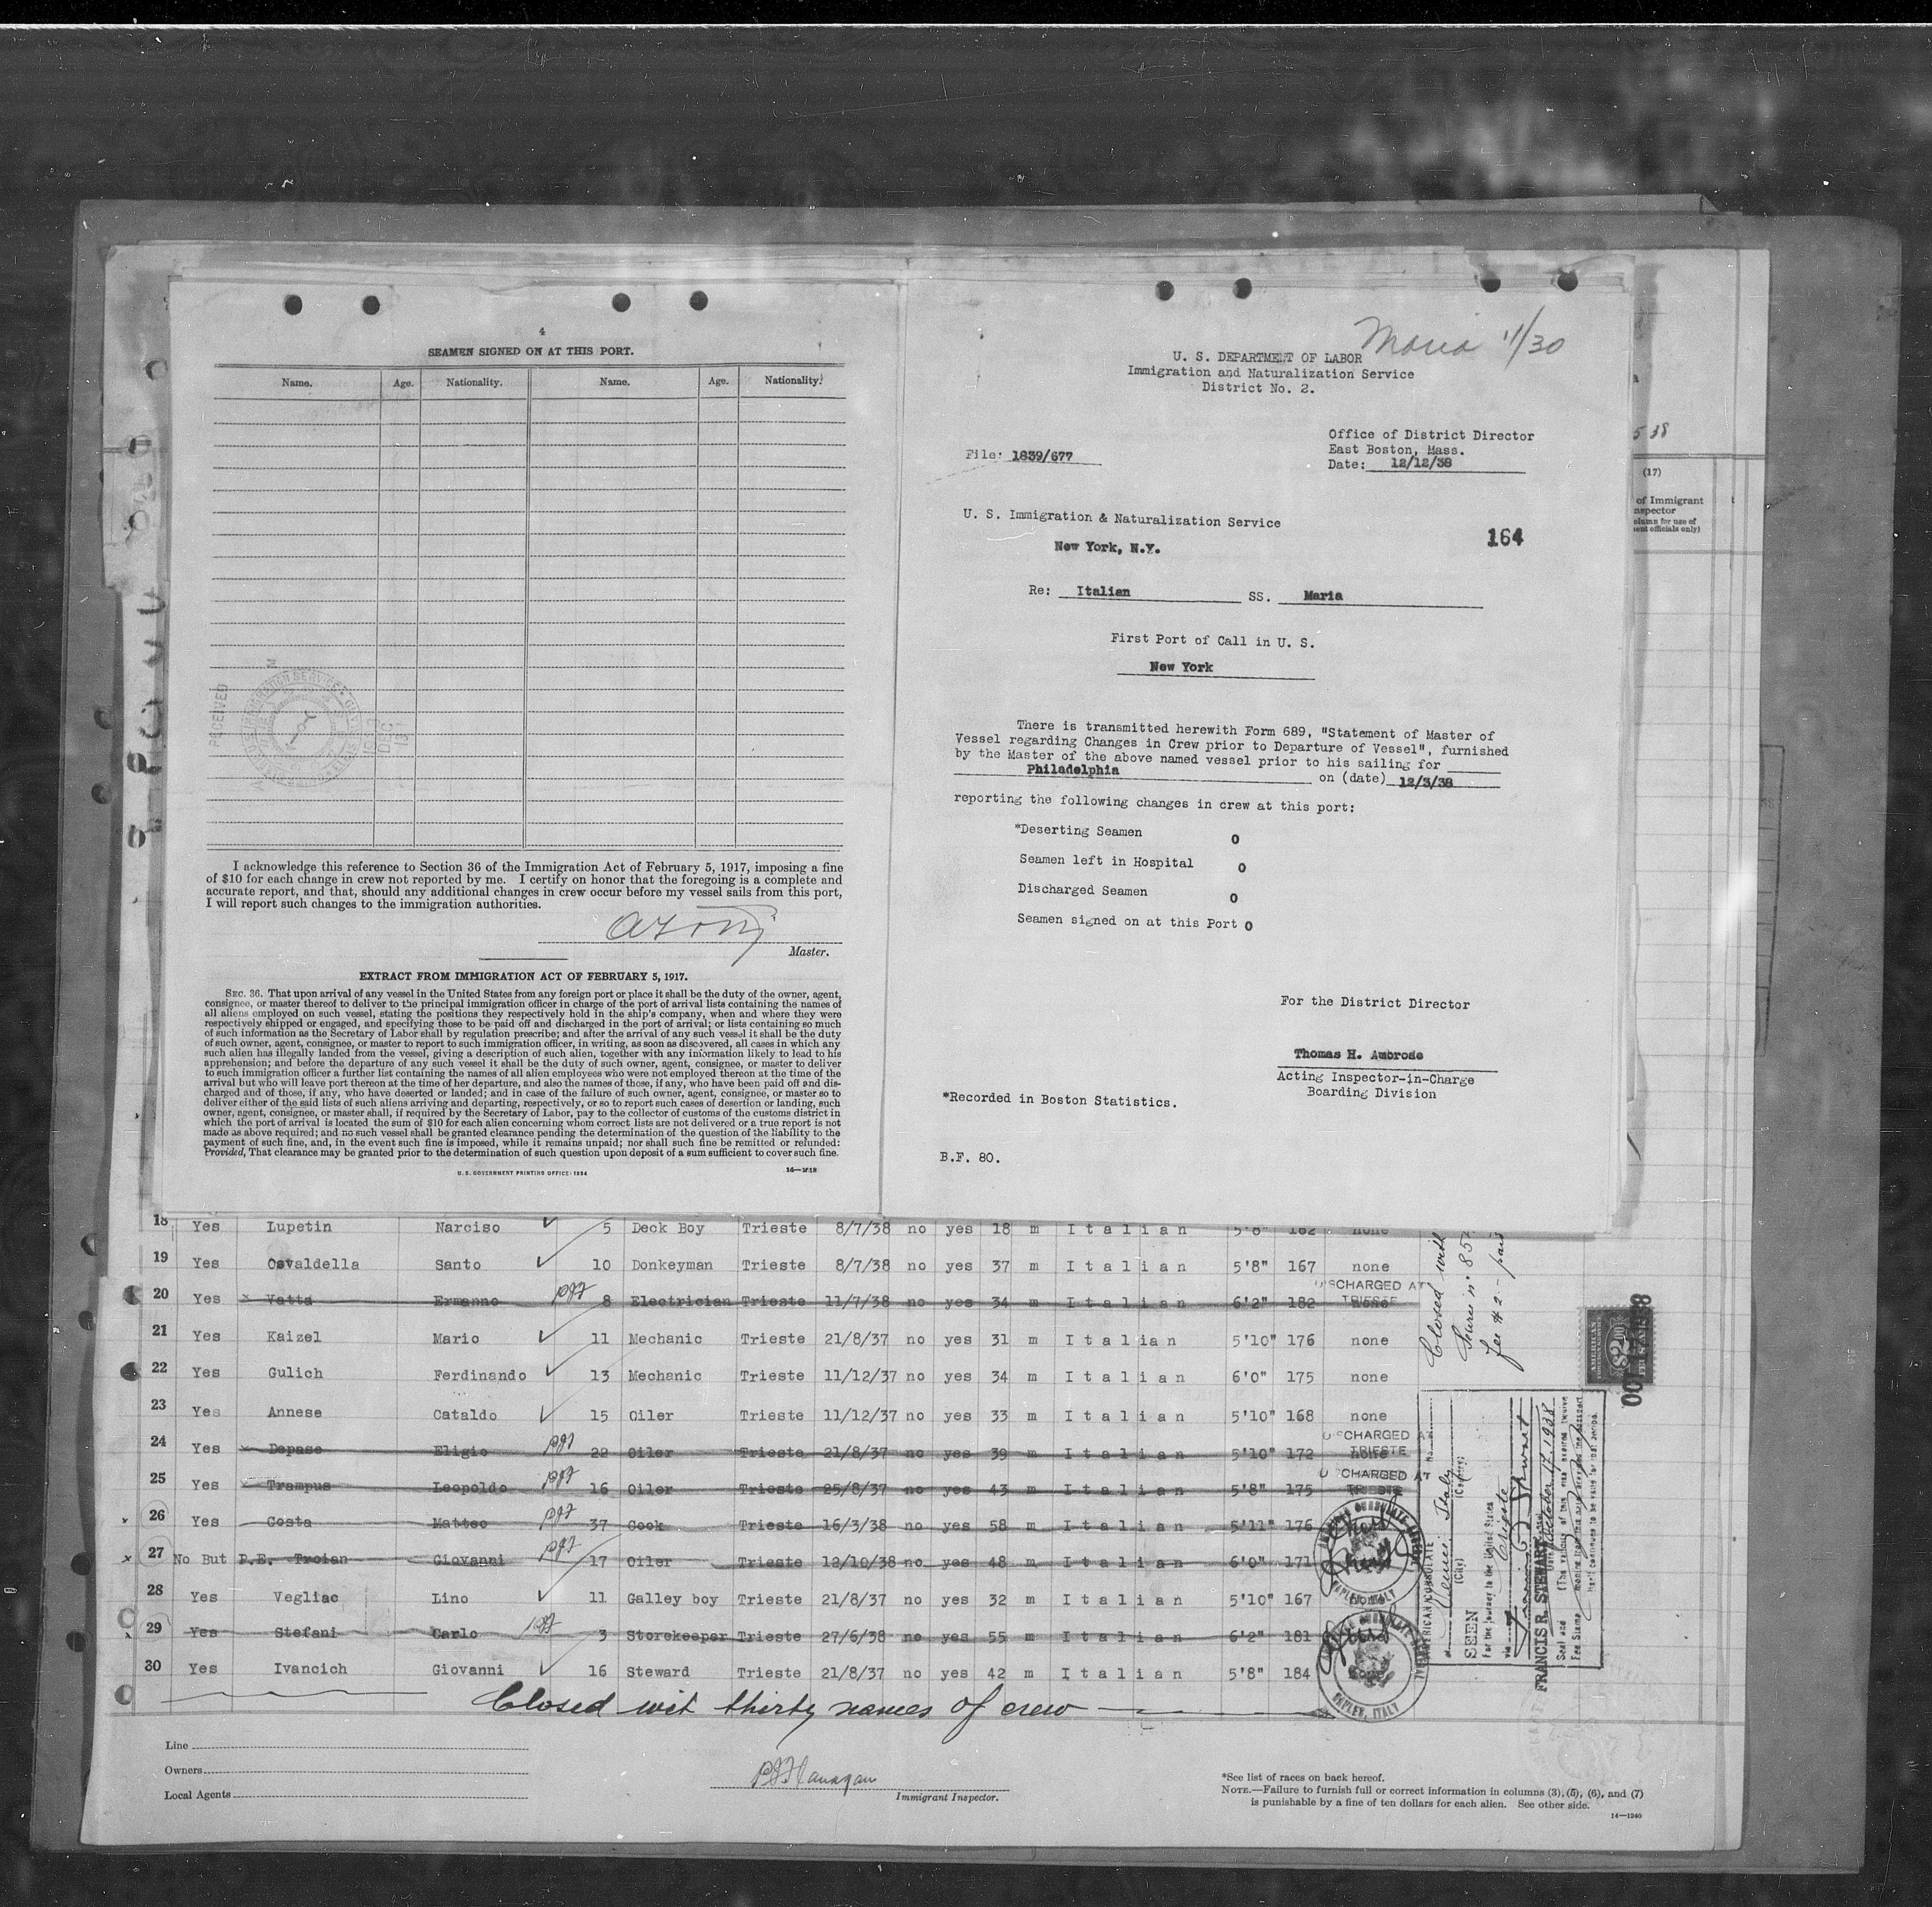 4
SEAMEN SIGNED ON AT THIS PORT.
Name. Age. Nationality. Name. Age. Nationality.
RECEIVED
DEC
13
I acknowledge this reference to Section 36 of the Immigration Act of February 5, 1917, imposing a fine
of $10 for each change in crew not reported by me. I certify on honor that the foregoing is a complete and
accurate report, and that, should any additional changes in crew occur before my vessel sails from this port,
I will report such changes to the immigration authorities.
Master.
EXTRACT FROM IMMIGRATION ACT OF FEBRUARY 5, 1917.
SEC. 36. That upon arrival of any vessel in the United States from any foreign port or place it shall be the duty of the owner, agent,
consignee, or master thereof to deliver to the principal immigration officer in charge of the port of arrival lists containing the names of
all aliens employed on such vessel, stating the positions they respectively hold in the ship's company, when and where they were
respectively shipped or engaged, and specifying those to be paid off and discharged in the port of arrival; or lists containing so much
of such information as the Secretary of Labor shall by regulation prescribe; and after the arrival of any such vessel it shall be the duty
of such owner, agent, consignee, or master to report to such immigration officer, in writing, as soon as discovered, all cases in which any
such alien has illegally landed from the vessel, giving a description of such alien, together with any information likely to lead to his
apprehension; and before the departure of any such vessel it shall be the duty of such owner, agent, consignee, or master to deliver
to such immigration officer a further list containing the names of all alien employees who were not employed thereon at the time of the
arrival but who will leave port thereon at the time of her departure, and also the names of those, if any, who have been paid off and dis-
charged and of those, if any, who have deserted or landed; and in case of the failure of such owner, agent, consignee, or master so to
deliver either of the said lists of such aliens arriving and departing, respectively, or so to report such cases of desertion or landing, such
owner, agent, consignee, or master shall, if required by the Secretary of Labor, pay to the collector of customs of the customs district in
which the port of arrival is located the sum of $10 for each alien concerning whom correct lists are not delivered or a true report is not
made as above required; and no such vessel shall be granted clearance pending the determination of the question of the liability to the
payment of such fine, and, in the event such fine is imposed, while it remains unpaid; nor shall such fine be remitted or refunded:
Provided, That clearance may be granted prior to the determination of such question upon deposit of a sum sufficient to cover such fine.
U. S. GOVERNMENT PRINTING OFFICE: 1934
Maria 11/30
U. S. DEPARTMENT OF LABOR
Immigration and Naturalization Service
District No. 2.
Office of District Director
East Boston, Mass.
File: 1839/677
Date: 12/12/38
U. S. Immigration & Naturalization Service
New York, N.Y.
164
Re: Italian SS. Maria
First Port of Call in U. S.
New York
There is transmitted herewith Form 689, "Statement of Master of
Vessel regarding Changes in Crew prior to Departure of Vessel", furnished
by the Master of the above named vessel prior to his sailing for
Philadelphia on (date) 12/3/38
reporting the following changes in crew at this port:
*Deserting Seamen 0
Seamen left in Hospital 0
Discharged Seamen 0
Seamen signed on at this Port 0
For the District Director
Thomas H. Ambrose
Acting Inspector-in-Charge
Boarding Division
*Recorded in Boston Statistics.
B.F. 80.
5 38
(17)
of Immigrant
nspector
olumn for use of
ent officials only)
18 Yes Lupetin Narciso 5 Deck Boy Trieste 8/7/38 no yes 18 m Italian 5'6" 162 none
19 Yes Osvaldella Santo 10 Donkeyman Trieste 8/7/38 no yes 37 m Italian 5'8" 167 none
20 Yes x Vatta Ermanno PJF 8 Electrician Trieste 11/7/38 no yes 34 m Italian 6'2" 182 none DISCHARGED AT TRIESTE
21 Yes Kaizel Mario 11 Mechanic Trieste 21/8/37 no yes 31 m Italian 5'10" 176 none
22 Yes Gulich Ferdinando 13 Mechanic Trieste 11/12/37 no yes 34 m Italian 6'0" 175 none
23 Yes Annese Cataldo 15 Oiler Trieste 11/12/37 no yes 33 m Italian 5'10" 168 none
24 Yes x Depase Eligio PJF 22 Oiler Trieste 21/8/37 no yes 39 m Italian 5'10" 172 none DISCHARGED AT TRIESTE
25 Yes Trampus Leopoldo PJF 16 Oiler Trieste 25/8/37 no yes 43 m Italian 5'8" 175 DISCHARGED AT TRIESTE
x 26 Yes Costa Matteo PJF 37 Cook Trieste 16/3/38 no yes 58 m Italian 5'11" 176
x 27 No But P.E. Troian Giovanni PJF 17 Oiler Trieste 12/10/38 no yes 48 m Italian 6'0" 171
28 Yes Vegliac Lino 11 Galley boy Trieste 21/8/37 no yes 32 m Italian 5'10" 167 none
x 29 Yes Stefani Carlo PJF 3 Storekeeper Trieste 27/6/38 no yes 55 m Italian 6'2" 181
30 Yes Ivancich Giovanni 16 Steward Trieste 21/8/37 no yes 42 m Italian 5'8" 184 none
NAPLES, ITALY
NAPLES, ITALY
Closed wit thirty names of crew
Closed with
fee $2 - paid
AMERICAN CONSULATE
Venice, Italy
(City) (Country)
SEEN
For the journey to the United States
FRANCIS R. STEWART
October 17, 1938
AMERICAN
$2
Line
Owners
Local Agents
PJFlanagan
Immigrant Inspector.
*See list of races on back hereof.
NOTE.—Failure to furnish full or correct information in columns (3), (5), (6), and (7)
is punishable by a fine of ten dollars for each alien. See other side.
14—1240